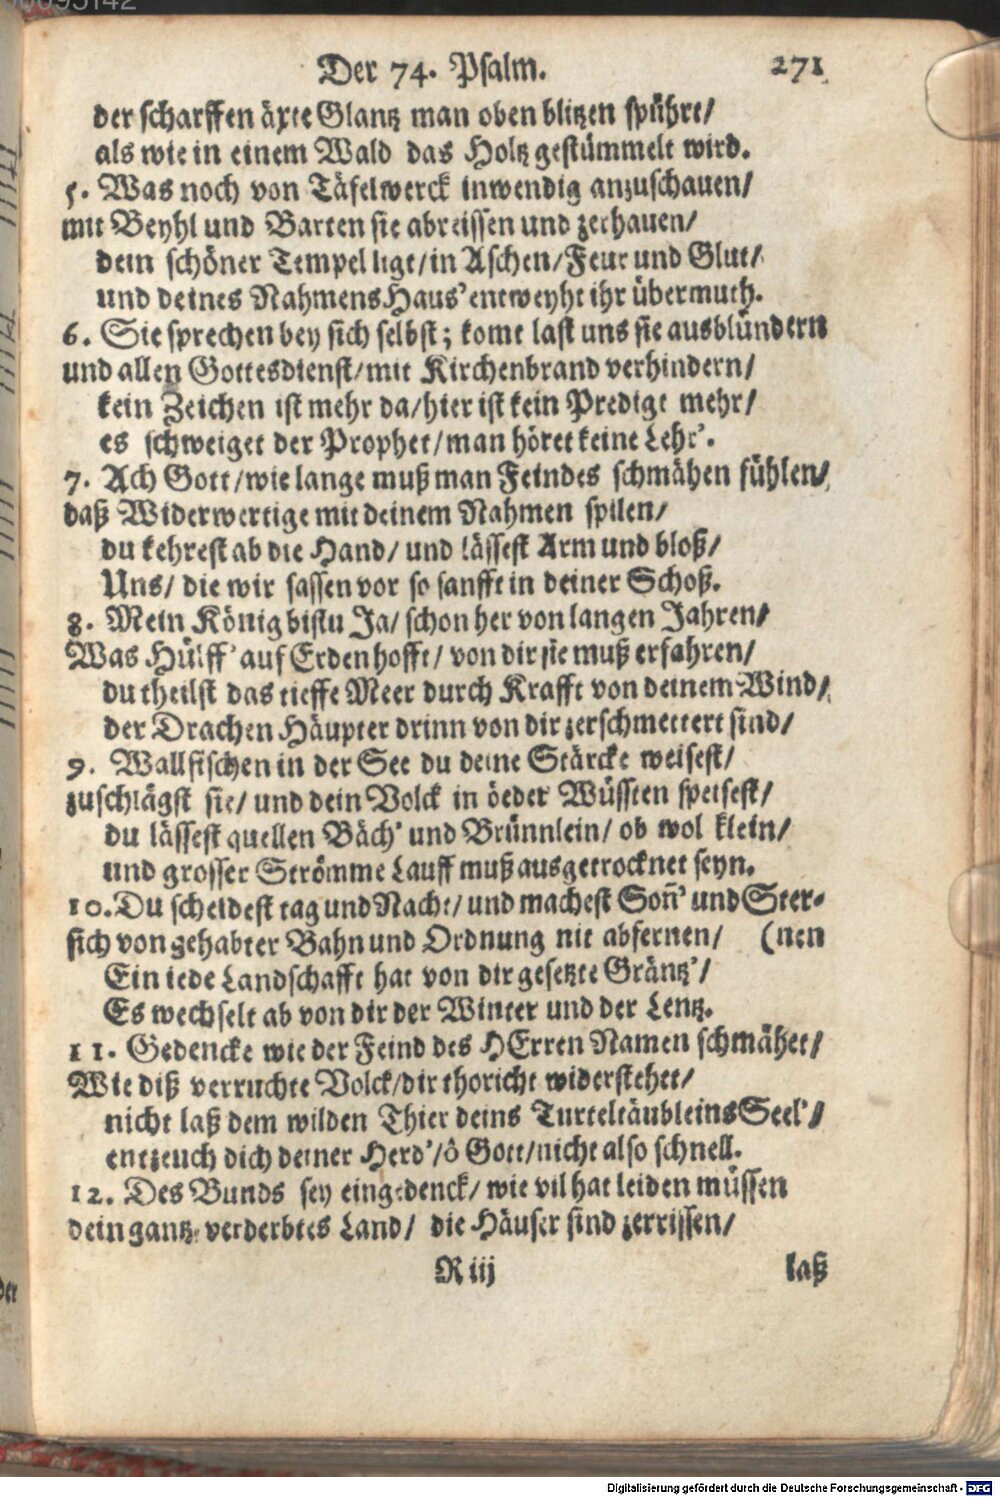 Der 74. Psalm. 271
der scharffen äxte Glantz man oben blitzen spührt/
als wie in einem Wald das Holtz gestümmelt wird.
5. Was noch von Täfelwerck inwendig anzuschauen/
mit Beyhl und Barten sie abreissen und zerhauen/
dein schöner Tempel ligt/in Aschen/Feur und Glut/
und deines Nahmens Haus' entweyht ihr übermuth.
6. Sie sprechen bey sich selbst; komt last uns sie ausblündern
und allen Gottesdienst/mit Kirchenbrand verhindern/
kein Zeichen ist mehr da/hier ist kein Predigt mehr/
es schweiget der Prophet/man höret keine Lehr'.
7. Ach Gott/wie lange muß man Feindes schmähen fühlen/
daß Widerwertige mit deinem Nahmen spilen/
du kehrest ab die Hand/ und lässest Arm und bloß/
Uns/ die wir sassen vor so sanfft in deiner Schoß.
8. Mein König bistu Ja/ schon her von langen Jahren/
Was Hülff' auf Erden hofft/ von dir sie muß erfahren/
du theilst das tieffe Meer durch Krafft von deinem Wind/
der Drachen Häupter drinn von dir zerschmettert sind/
9. Wallfischen in der See du deine Stärcke weisest/
zuschlägst sie/ und dein Volck in öeder Wüssten speisest/
du lässest quellen Bäch' und Brünnlein/ ob wol klein/
und grosser Strömme Lauff muß ausgetrocknet seyn.
10. Du scheidest tag und Nacht/ und machest Soñ' und Ster-
sich von gehabter Bahn und Ordnung nit abfernen/ (nen
Ein iede Landschafft hat von dir gesetzte Gräntz'/
Es wechselt ab von dir der Winter und der Lentz.
11. Gedencke wie der Feind des HErren Namen schmähet/
Wie diß verruchte Volck/dir thoricht widerstehet/
nicht laß dem wilden Thier deins Turteltäubleins Seel'/
entzeuch dich deiner Herd'/ô Gott/nicht also schnell.
12. Des Bunds sey eingedenck/ wie vil hat leiden müssen
dein gantz verderbtes Land/ die Häuser sind zerrissen/
R iij laß
Digitalisierung gefördert durch die Deutsche Forschungsgemeinschaft - DFG